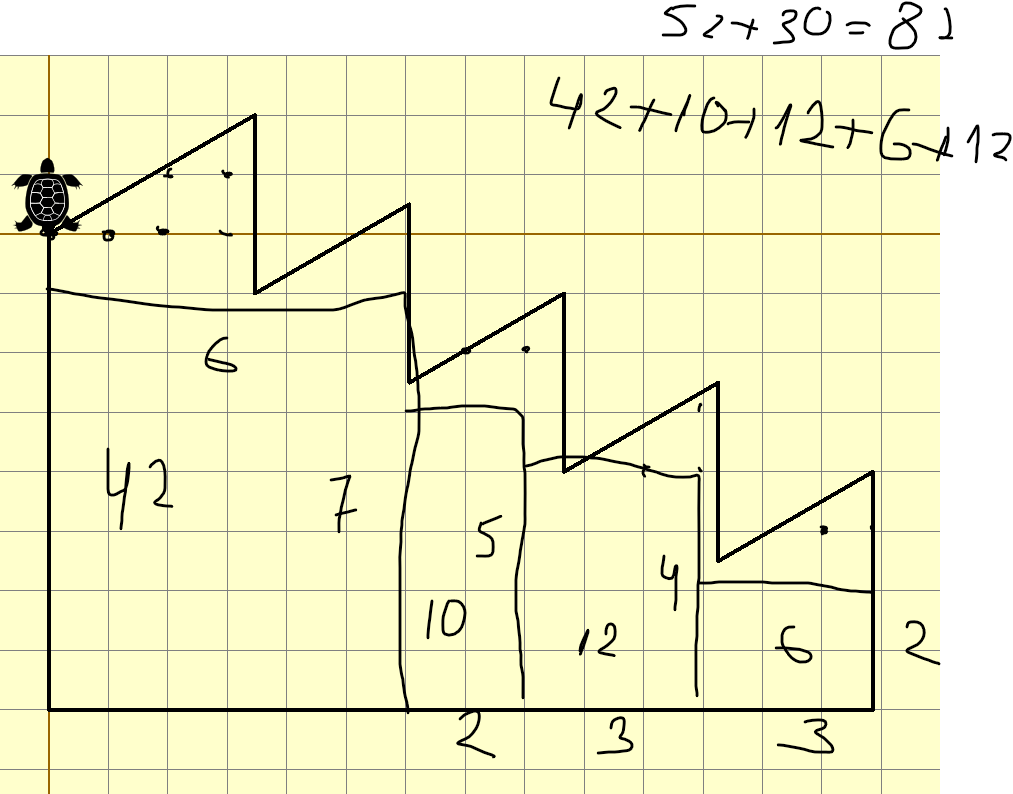 52+30=82
42+10+12+6+12
6
42
7
5
4
10
12
6
2
2
3
3